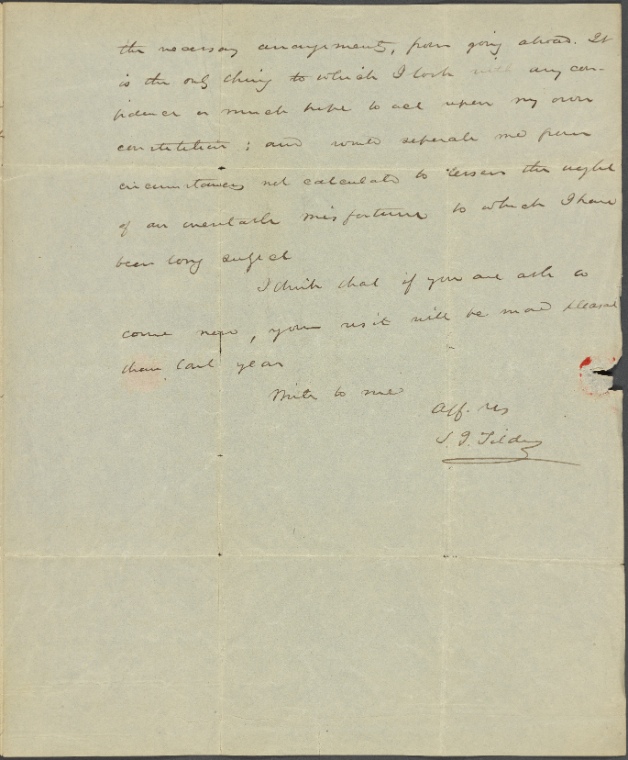 the necessary arrangements, from going abroad. It
is the only thing to which I look with any con-
fidence or much hope to act upon my own
constitution; and would seperate me from
circumstances not calculated to lessen the weight
of an inevitable misfortune to which I have
been long subject
I think that if you are able to
come now, your visit will be more pleasant
than last year
Write to me
Aff. yrs
S. J. Tilden